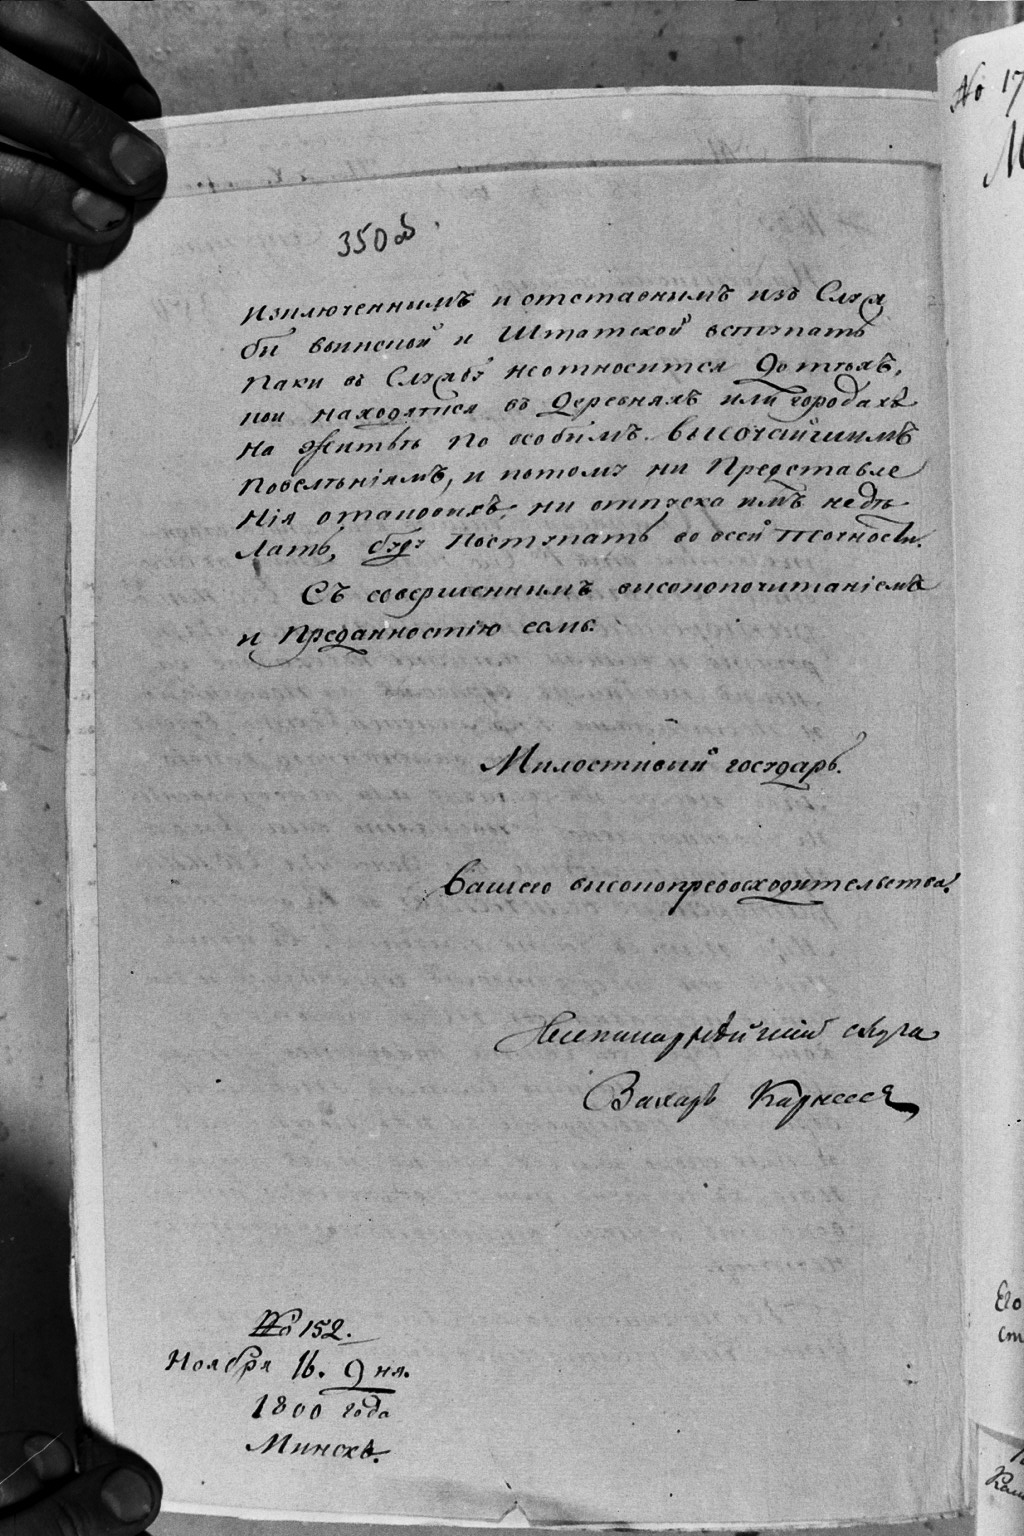 350 об
изключеннимъ и отставнимъ изъ Служ
би воинской и Штатской вступать
паки въ Службу неотносится до тѣхъ,
кои находятся въ деревняхъ или городахъ
на житьѣ по особимъ Высочайшимъ
повелѣніямъ, и потому ни представле
нія отаковихъ, ни отпуска имъ недѣ
лать, буду поступать во всей точности.
Съ совершеннимъ високопочитаніемъ
и преданностію есмь.
Милостивий государь.
Вашего високопревосходительства.
Всепокорнѣйший слуга
Захаръ Карнеевъ
№ 152.
Ноября 16. дня.
1800 года
Минскъ.
№ 17
Его
ст